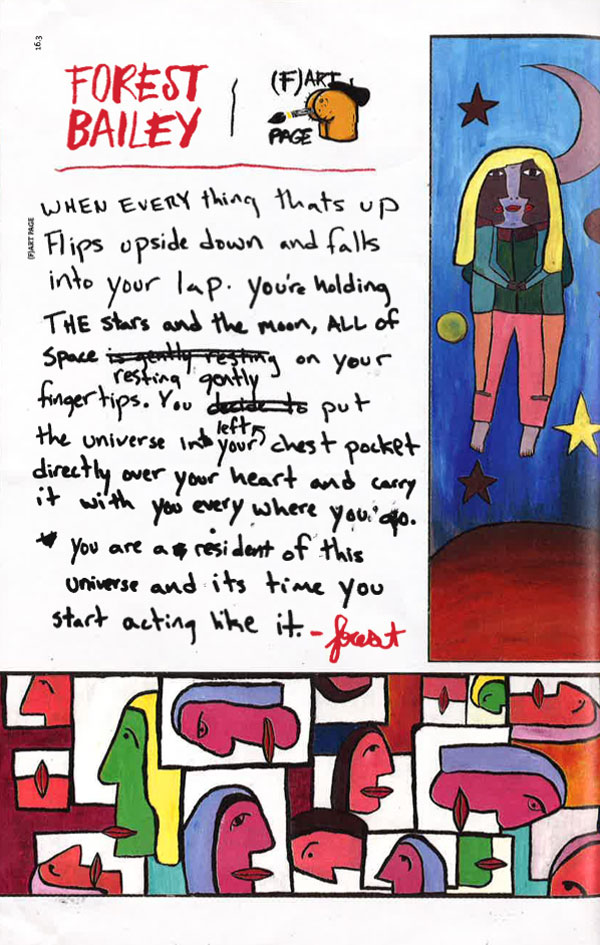 16.3
FOREST
BAILEY
(F)ART
PAGE
(F)ART PAGE
WHEN EVERY thing thats up
Flips upside down and falls
into your lap. you're holding
THE stars and the moon, ALL of
Space is gently resting on your
resting gently
fingertips. You decide to put
left
the universe into your chest pocket
directly over your heart and carry
it with you every where you go.
you are a resident of this
universe and its time you
start acting like it. - forest